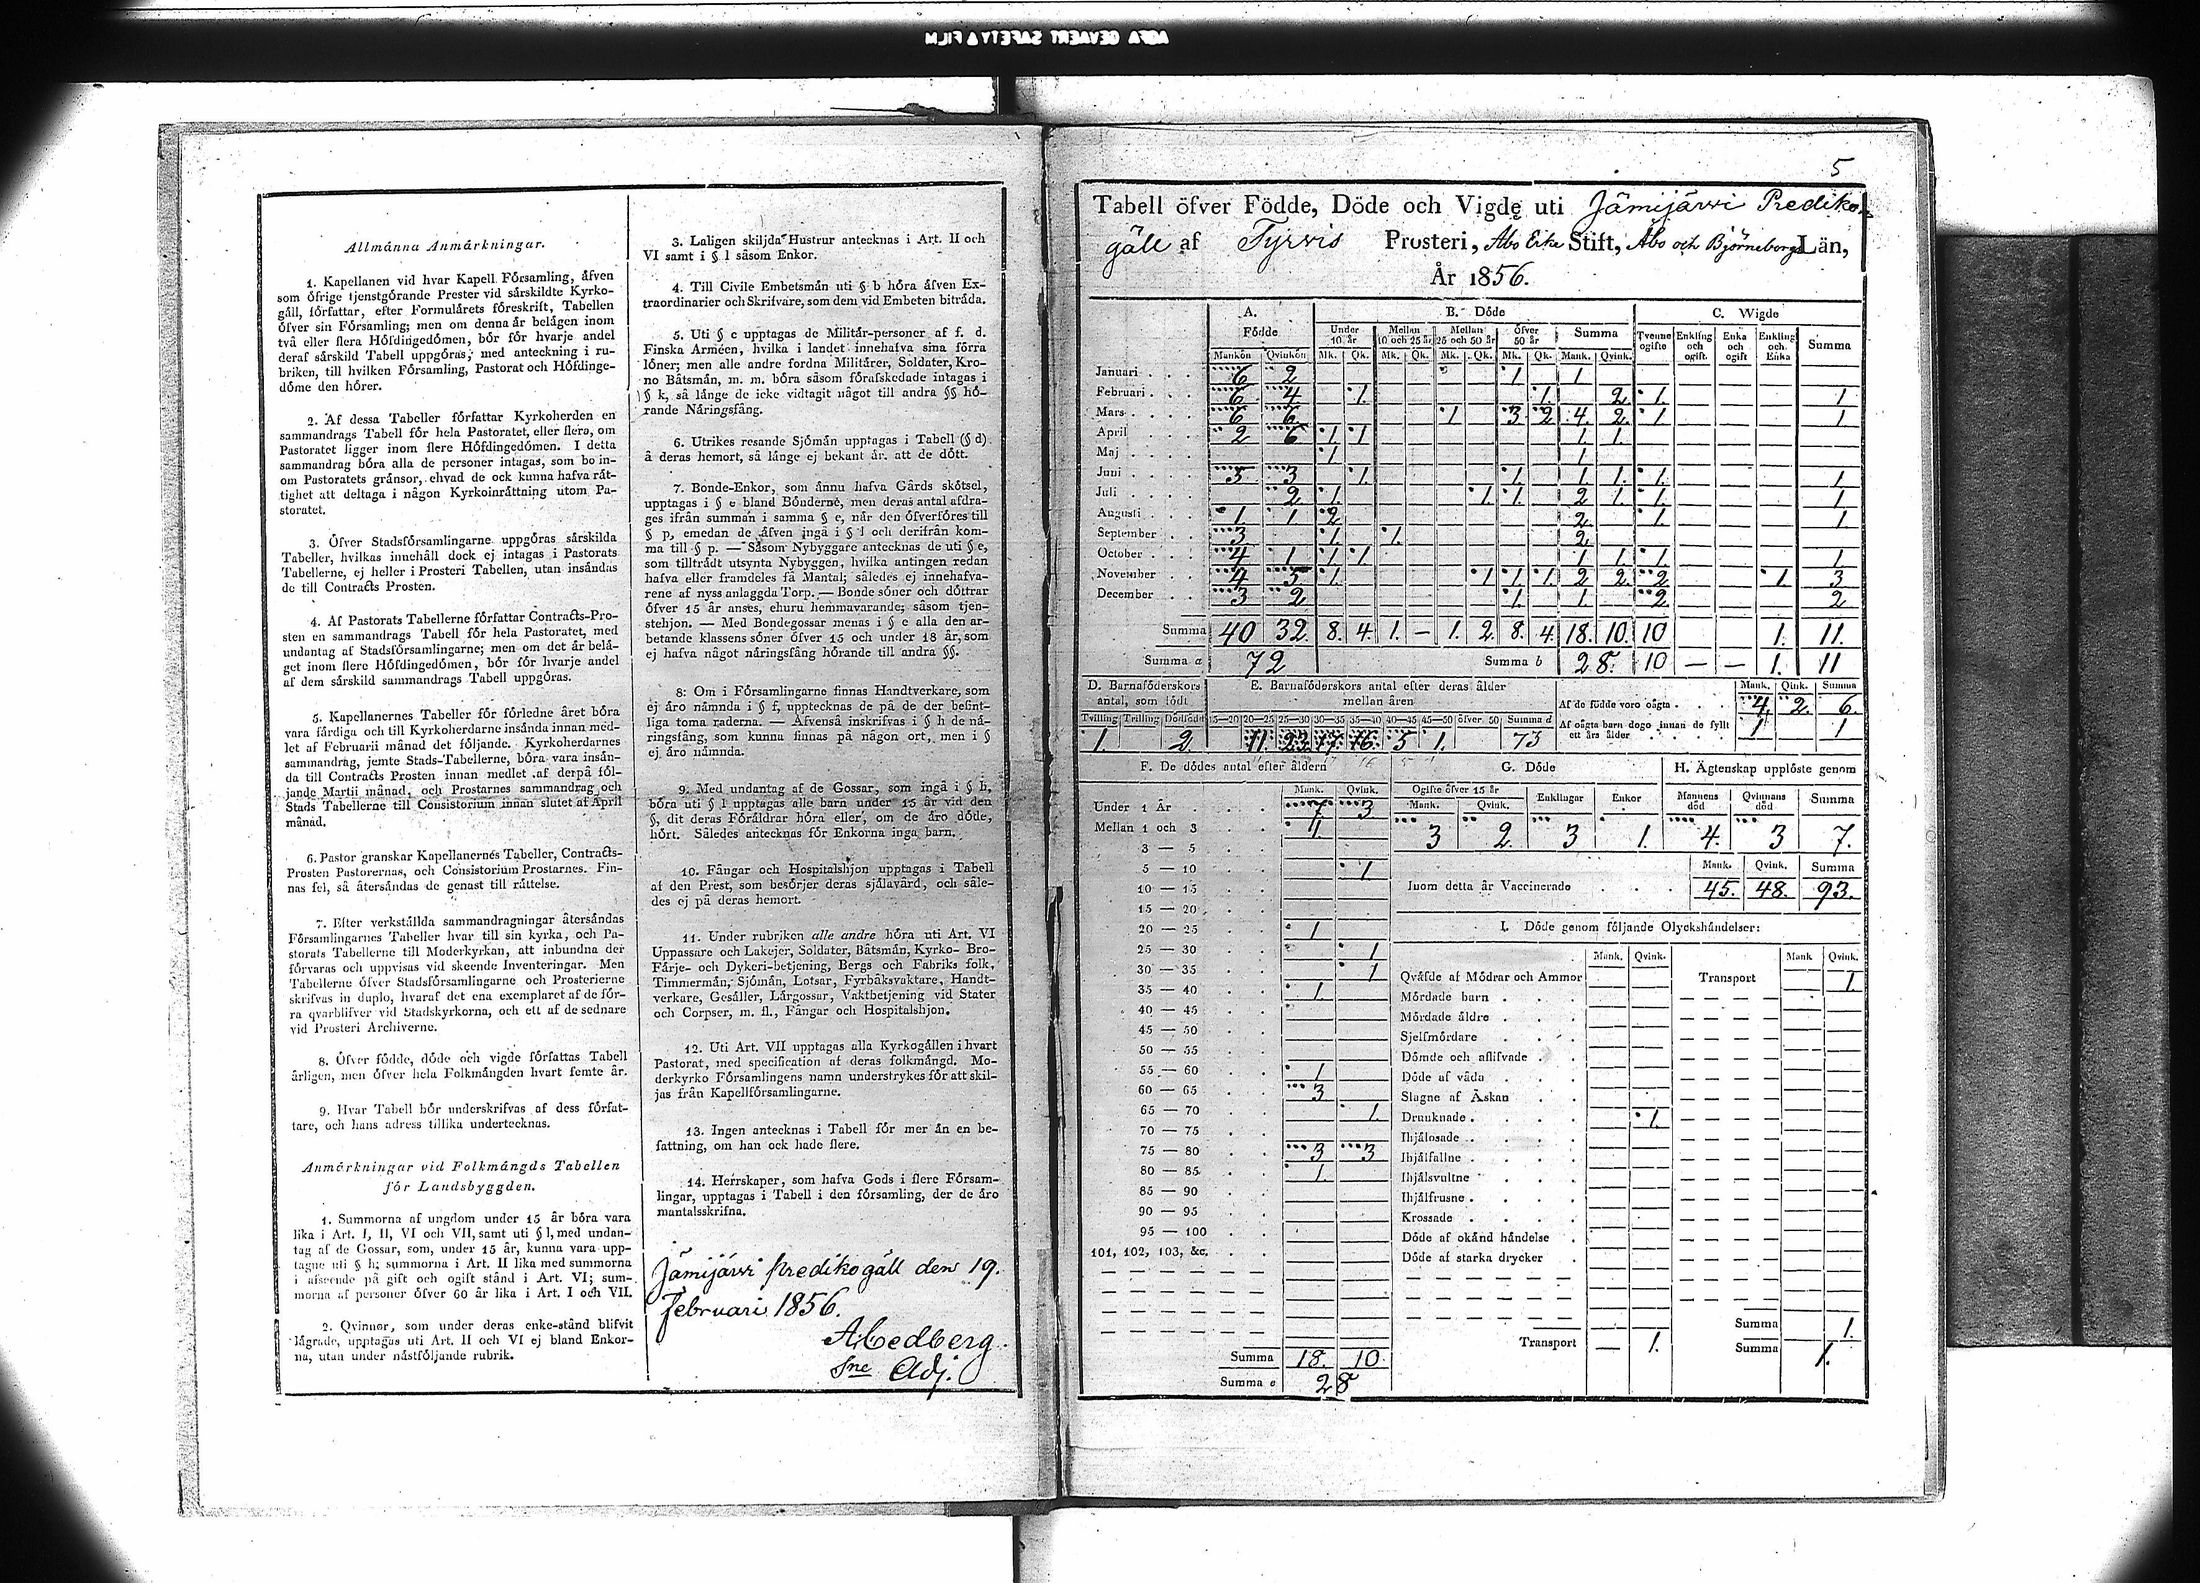 AGFA GEVAERT SAFETY FILM
Allmänna Anmärkningar.
1. Kapellanen vid hvar Kapell Församling, äfven
som öfrige tjenstgörande Prester vid särskildte Kyrko-
gäll, författar, efter Formulärets föreskrift, Tabellen
öfver sin Församling; men om denna är belägen inom
två eller flera Höfdingedömen, bör för hvarje andel
deraf särskild Tabell uppgöras, med anteckning i ru-
briken, till hvilken Församling, Pastorat och Höfdinge-
döme den hörer.
2. Af dessa Tabeller författar Kyrkoherden en
sammandrags Tabell för hela Pastoratet, eller flera, om
Pastoratet ligger inom flere Höfdingedömen. I detta
sammandrag böra alla de personer intagas, som bo in-
om Pastoratets gränsor, ehvad de ock kunna hafva rät-
tighet att deltaga i någon Kyrkoinrättning utom Pa-
storatet.
3. Öfver Stadsförsamlingarne uppgöras särskilda
Tabeller, hvilkas innehåll dock ej intages i Pastorats
Tabellerne, ej heller i Prosteri Tabellen, utan insändas
de till Contracts Prosten.
4. Af Pastorats Tabellerne författar Contracts-Pro-
sten en sammandrags Tabell för hela Pastoratet, med
undantag af Stadsförsamlingarne; men om det är belä-
get inom flere Höfdingedömen, bör för hvarje andel
af dem särskild sammandrags Tabell uppgöras.
5. Kapellanernes Tabeller för förledne året böra
vara färdiga och till Kyrkoherdarne insända innan med-
let af Februarii månad det följande. Kyrkoherdarnes
sammandrag, jemte Stads-Tabellerne, böra vara insän-
da till Contracts Prosten innan medlet af derpå föl-
jande Martii månad, och Prostarnes sammandrag och
Stads Tabellerne till Consistorium innan slutet af April
månad.
6. Pastor granskar Kapellanernes Tabeller, Contracts-
Prosten Pastorernas, och Consistorium Prostarnes. Fin-
nas fel, så återsändas de genast till rättelse.
7. Efter verkställda sammandragningar återsändas
Församlingarnes Tabeller hvar till sin kyrka, och Pa-
storats Tabellerne till Moderkyrkan, att inbundna der
förvaras och uppvisas vid skeende Inventeringar. Men
Tabellerne öfver Stadsförsamlingarne och Prosterierne
skrifvas in duplo, hvaraf det ena exemplaret af de för-
ra qvarblifver vid Stadskyrkorna, och ett af de sednare
vid Prosteri Archiverne.
8. Öfver födde, döde och vigde författas Tabell
årligen, men öfver hela Folkmängden hvart femte år.
9. Hvar Tabell bör underskrifvas af dess förfat-
tare, och hans adress tillika undertecknas.
Anmärkningar vid Folkmängds Tabellen
för Landsbyggden.
1. Summorna af ungdom under 15 år böra vara
lika i Art. I, II, VI och VII, samt uti § l, med undan-
tag af de Gossar, som, under 15 år, kunna vara upp-
tagne uti § h; summorna i Art. II lika med summorna
i afseende på gift och ogift stånd i Art. VI; sum-
morna af personer öfver 60 år lika i Art. I och VII.
2. Qvinnor, som under deras enke-stånd blifvit
lägrade, upptagas uti Art. II och VI ej bland Enkor-
na, utan under nästföljande rubrik.
3. Laligen skiljda Hustrur antecknas i Art. II och
VI samt i § l såsom Enkor.
4. Till Civile Embetsmän uti § b höra äfven Ex-
traordinarier och Skrifvare, som dem vid Embeten biträda.
5. Uti § c upptagas de Militär-personer af f. d.
Finska Arméen, hvilka i landet innehafva sina förra
löner; men alle andre fordna Militärer, Soldater, Kro-
no Båtsmän, m. m. böra såsom förafskedade intagas i
§ k, så länge de icke vidtagit något till andra §§ hö-
rande Näringsfång.
6. Utrikes resande Sjömän upptagas i Tabell (§ d)
å deras hemort, så länge ej bekant är, att de dött.
7. Bonde-Enkor, som ännu hafva Gårds skötsel,
upptagas i § e bland Bönderne, men deras antal afdra-
ges ifrån summan i samma § e, när den öfverföres till
§ p, emedan de äfven ingå i § l och derifrån kom-
ma till § p. — Såsom Nybyggare antecknas de uti § e,
som tillträdt utsynta Nybyggen, hvilka antingen redan
hafva eller framdeles få Mantal; således ej innehafva-
rene af nyss anlaggda Torp. — Bonde söner och döttrar
öfver 15 år anses, ehuru hemmavarande, såsom tjen-
stehjon. — Med Bondegossar menas i § e alla den ar-
betande klassens söner öfver 15 och under 18 år, som
ej hafva något näringsfång hörande till andra §§.
8: Om i Församlingarne finnas Handtverkare, som
ej äro nämnda i § f, upptecknas de på de der befint-
liga toma raderna. — Äfvenså inskrifvas i § h de nä-
ringsfång, som kunna finnas på någon ort, men i §
ej äro nämnda.
9. Med undantag af de Gossar, som ingå i § h,
böra uti § l upptagas alle barn under 15 år vid den
§, dit deras Föräldrar höra eller, om de äro döde,
hört. Således antecknas för Enkorna inga barn.
10. Fångar och Hospitalshjon upptagas i Tabell
af den Prest, som besörjer deras själavård, och såle-
des ej på deras hemort.
11. Under rubriken alle andre höra uti Art. VI
Uppassare och Lakejer, Soldater, Båtsmän, Kyrko- Bro-
Färje- och Dykeri-betjening, Bergs och Fabriks folk,
Timmermän, Sjömän, Lotsar, Fyrbåksvaktare, Handt-
verkare, Gesäller, Lärgossar, Vaktbetjening vid Stater
och Corpser, m. fl., Fångar och Hospitalshjon.
12. Uti Art. VII upptagas alla Kyrkogällen i hvart
Pastorat, med specification af deras folkmängd. Mo-
derkyrko Församlingens namn understrykes för att skil-
jas från Kapellförsamlingarne.
13. Ingen antecknas i Tabell för mer än en be-
fattning, om han ock hade flere.
14. Herrskaper, som hafva Gods i flere Försam-
lingar, upptagas i Tabell i den församling, der de äro
mantalsskrifna.
Jämijärvi predikogäll den 19.
februari 1856.
A Cedberg.
Sne Adj.
5
Tabell öfver Födde, Döde och Vigde uti Jämijärvi Prediko-
gäll af Tyrvis Prosteri, Åbo Erke Stift, Åbo och Björneborgs Län,
År 1856.
A. B. Döde C. Wigde
Födde Under 10 år Mellan 10 och 25 år Mellan 25 och 50 år Öfver 50 år Summa Tvenne ogifte Enkling och ogift. Enka och ogift Enkling och Enka Summa
Mankön Qvinkön Mk. Qk. Mk. Qk. Mk. Qk. Mk. Qk. Mank. Qvink.
Januari 6 2 1 1
Februari 6 4 1. 1. 2. 1. 1
Mars 6 6 1 3 2 4. 2. 1 1
April 2 6 1. 1 1. 1.
Maj 1. 1
Juni 5 3 1. 1 1 1. 1. 1
Juli 2 1. 1. 1. 2 1. 1. 1
Augusti 1 1 2 2 1 1
September 3 1. 1. 2
October 4 1 1 1 1 1. 1. 1
November 4 5 1. 1 1. 1. 2 2. 2 1. 3
December 3 2 1. 1. 2 2
Summa 40 32 8. 4. 1. — 1. 2. 8. 4. 18. 10. 10 1. 11.
Summa a 72 Summa b 28. 10 — — 1. 11
D. Barnaföderskors antal, som födt
Tvilling Trilling Dödfödt
1. 2.
E. Barnaföderskors antal efter deras ålder mellan åren
15—20 20—25 25—30 30—35 35—40 40—45 45—50 öfver 50 Summa d
11. 23. 17. 16. 5 1. 73
Mank. Qink. Summa
Af de födde voro oägta 4. 2. 6.
Af oägta barn dogo innan de fyllt ett års ålder 1 1
F. De dödes antal efter åldern
Mank. Qvink.
Under 1 År 7 3
Mellan 1 och 3 1.
3 — 5
5 — 10 1
10 — 15
15 — 20
20 — 25 1
25 — 30 1
30 — 35 1
35 — 40 1.
40 — 45
45 — 50
50 — 55
55 — 60 1
60 — 65 3
65 — 70 1.
70 — 75
75 — 80 3 3
80 — 85 1.
85 — 90
90 — 95
95 — 100
101, 102, 103, &c.
Summa 18. 10.
Summa e 28
G. Döde
Ogifte öfver 15 år Enklingar Enkor
Mank. Qvink.
3 2. 3 1.
H. Ägtenskap upplöste genom
Mannens död Qvinnans död Summa
4. 3 7.
Mank. Qvink. Summa
Inom detta år Vaccinerade 45. 48. 93.
I. Döde genom följande Olyckshändelser:
Mank. Qvink. Mank Qvink.
Qväfde af Mödrar och Ammor Transport 1.
Mördade barn
Mördade äldre
Sjelfmördare
Dömde och aflifvade
Döde af våda
Slagne af Åskan
Drunknade 1.
Ihjälosade
Ihjälfallne
Ihjälsvultne
Ihjälfrusne
Krossade
Döde af okänd händelse
Döde af starka drycker
Summa 1.
Transport — 1. Summa 1.